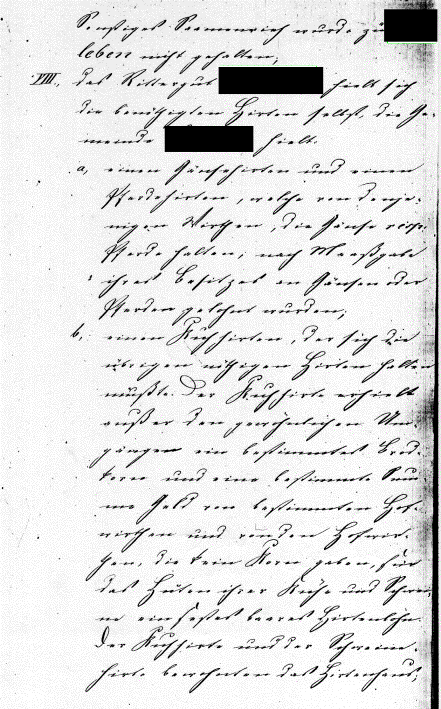 Sonstiges Saamenvieh wurde zu
leben nicht gehalten;
VIII., das Rittergut hielt sich
die benöthigten Hirten selbst, die Ge-
meinde hielt.
a, einen Gänsehirten und einen
Pferdehirten, welche von denje-
nigen Wirthen, die Gänse resp.
Pferde halten, nach Maaßgabe
ihres Besitzes an Gänsen oder
Pferden gelohnt wurden;
b, einen Kuhhirten, der sich die
übrigen nöthigen Hirten halten
mußte. Der Kuhhirte erhielt
außer den gewöhnlichen Um-
gängen ein bestimmtes Brod-
korn und eine bestimmte Sum-
me Geld von bestimmten Hof-
wirthen und von den Hofwir-
then, die kein Korn gaben, für
das Hüten ihrer Kühe und Schwei-
ne ein festes baares Hirtenlohn.
Der Kuhhirte und der Schweine-
hirte bewohnten das Hirtenhaus,